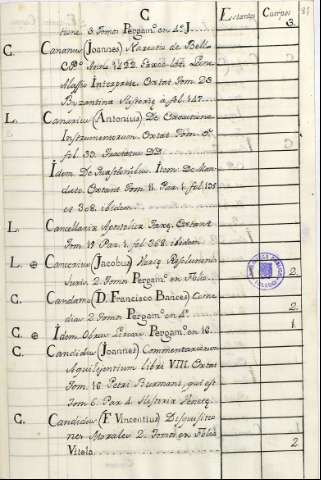 C
Estantes
Cuerpos
tune. 3. Tomos Pergam.º en 4.º J.
3.
C. Cananus (Joannes) Narratio de Bello
C.P.º Anno 1422.
Allatio Interprete. Extat Tom. 23
Byzantina Historiæ à fol. 187.
L. Canarius (Antonius) De Executione
Instrumentorum. Extat Tom. 3º
fol. 33. Tractatus DD.
Idem De Item De Man-
dato. Extant Tom. 6. Par. 1. fol. 135
et 308. ibidem
L. Cancellaria Apostolica Extant
Tom. 15 Par. 1. fol. 368. ibidem
L. ⊕ Cancerius (Jacobus) Resolutionū
Juris 2. Tomos Pergam.º en Folio
2.
C. Candamo (D. Francisco Bances) Come-
dias 2. Tomos Pergam.º en 4.º
2.
C. ⊕ Idem Obras Liricas Pergam.º en 16.
1
C. Candidus (Joannes) Commentariorum
Aquilejensium libri VIII. Extat
Tom. 16 Petri Burmani, qui est
Tom. 6. Par. 4. Historiæ
C. Candidus (F. Vincentius) Disquisitio-
nes Morales 2. Tomos en Folio
Vitela
2